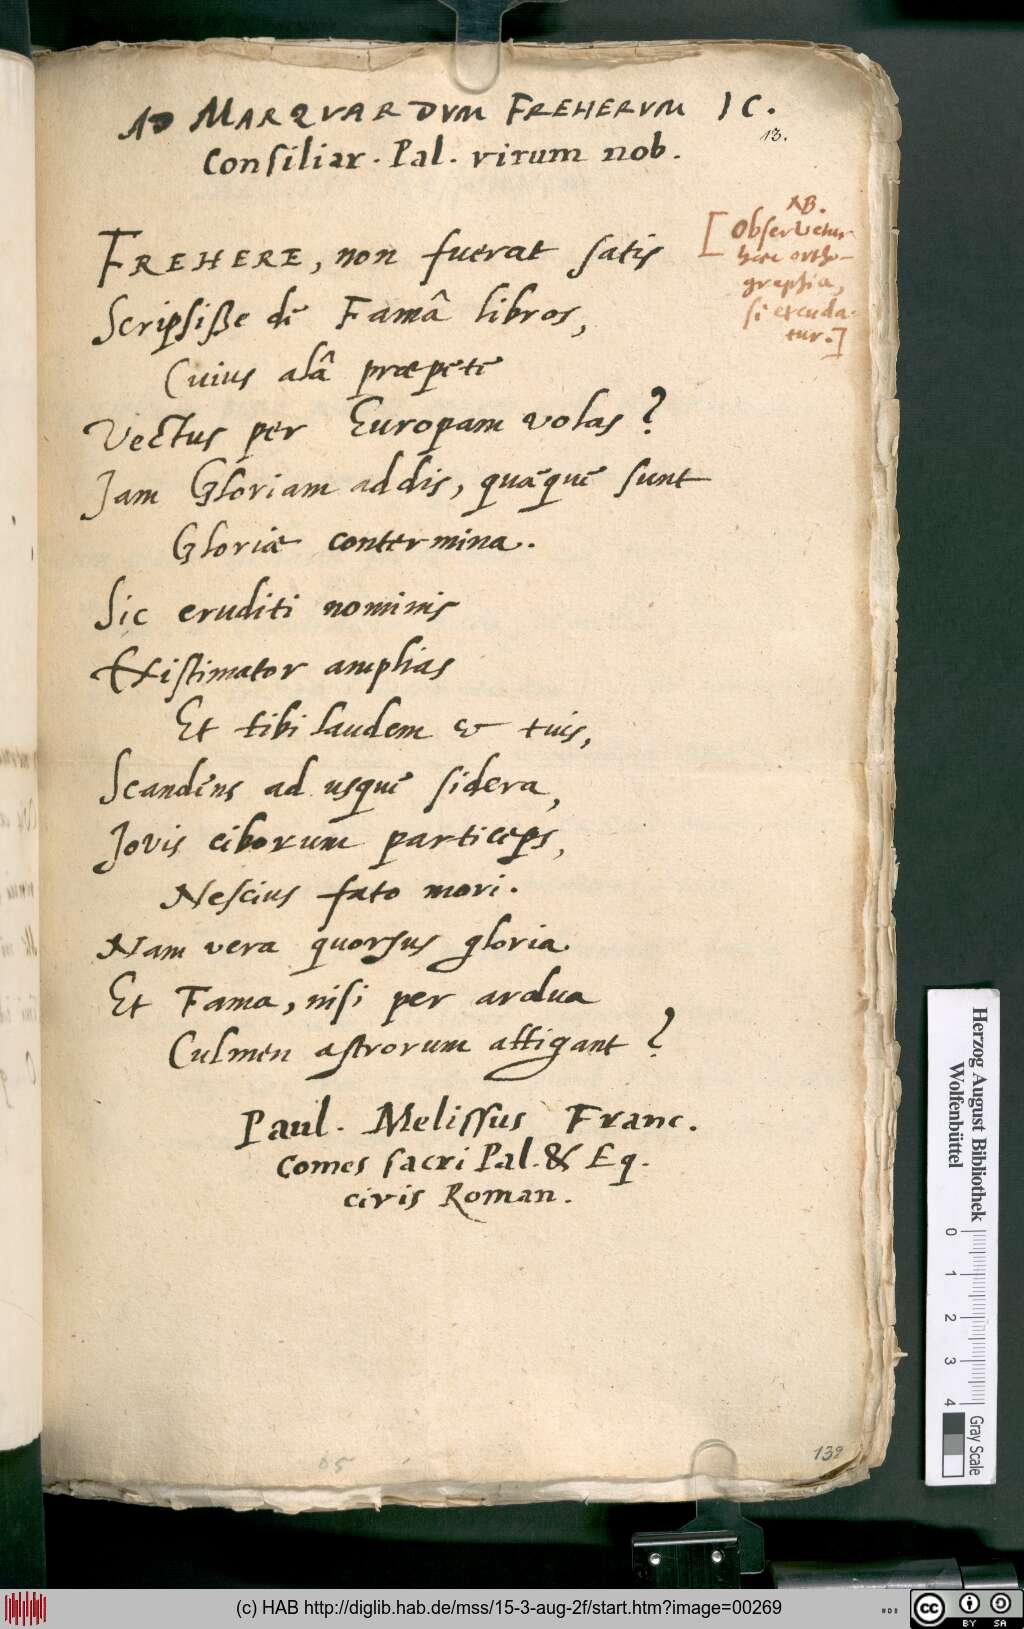 AD MARQVARDVM FREHERVM IC.
13.
Consiliar. Pal. virum nob.
NB.
[Observetur
haec ortho-
graphia,
si excuda-
tur.]
FREHERE, non fuerat satis
Scripsiße dē Famâ libros,
Cuius alâ præpētē
Vectus per Europam volas?
Jam Gloriam addis, quæquē sunt
Gloriæ contermina.
Sic eruditi nominis
Existimator amplias
Et tibi laudem & tuis,
Scandēns ad usquē sidera,
Jovis ciborum particeps,
Nescius fato mori.
Nam vera quorsus gloria
Et Fama, nisi per ardua
Culmen astrorum attigant?
Paul. Melissus Franc.
Comes sacri Pal. & Eq.
civis Roman.
139
Herzog August Bibliothek
Wolfenbüttel
0 1 2 3 4
Gray Scale
(c) HAB http://diglib.hab.de/mss/15-3-aug-2f/start.htm?image=00269
cc BY SA